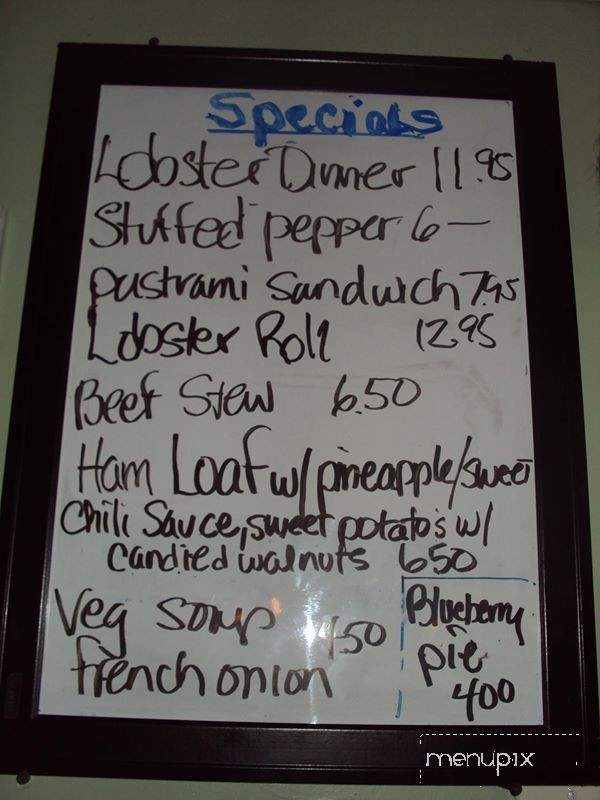 Specials
Lobster Dinner 11.95
Stuffed pepper 6—
pastrami Sandwich 7.95
Lobster Roll 12.95
Beef Stew 6.50
Ham Loaf w/ pineapple/sweet
Chili Sauce, sweet potato's w/
candied walnuts 650
Veg soup
french onion
450
Blueberry
pie
400
menupix